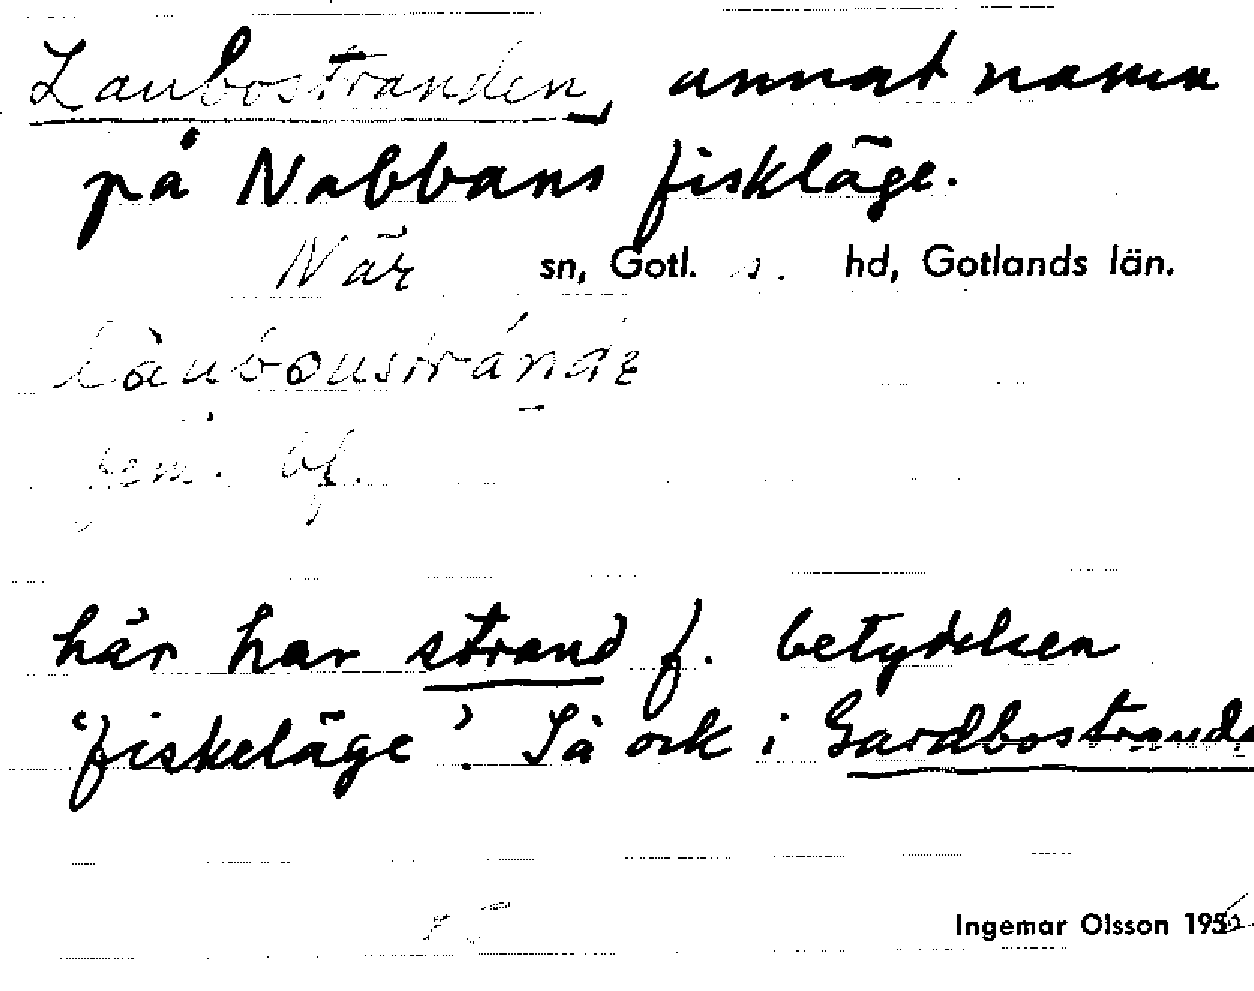 Laubostranden, annat namn
på Nabbans fiskläge.
När sn, Gotl. s. hd, Gotlands län.
làuboustrándɛ
gem. bf.
här har strand f. betydelsen
'fiskeläge'. Så ock i Gardbostrande
Ingemar Olsson 1956